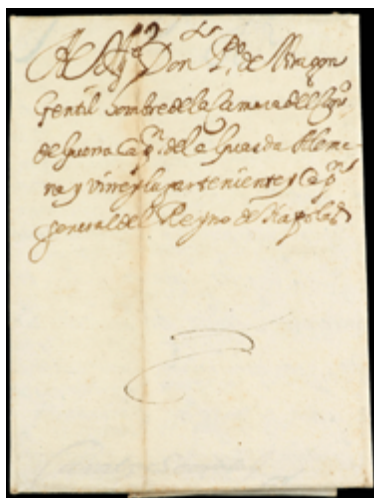 Al S.r Don P.o de Aragon
Gentil hombre de la Camara del Cons.o
de Guerra Cap.n de la Guarda Alema-
na y Virrey lugarteniente y Cap.n
general del Reyno de Napoles